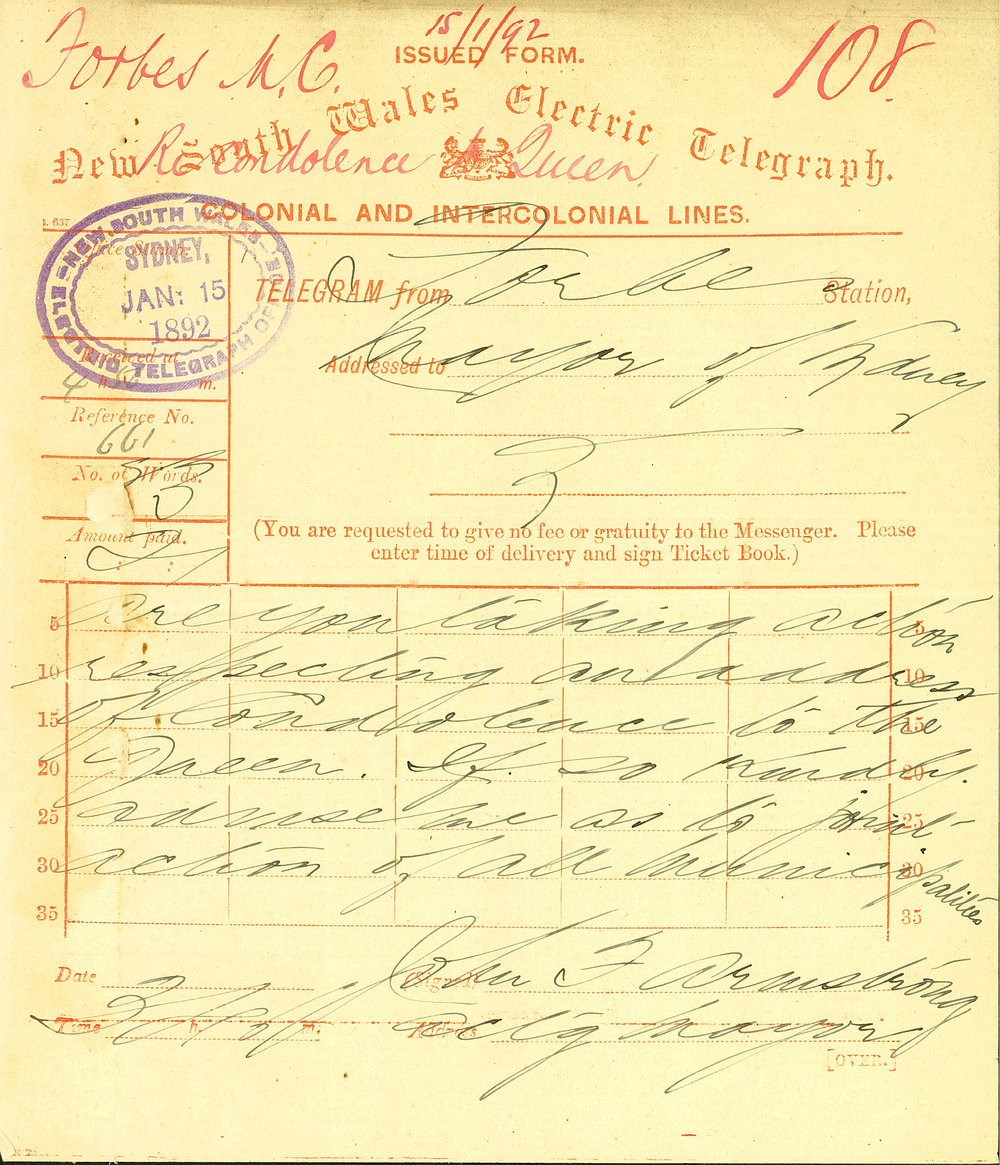 15/1/92
Forbes M.C.
ISSUED FORM.
108
New South Wales Electric Telegraph.
Re condolence to Queen
COLONIAL AND INTERCOLONIAL LINES.
NEW SOUTH WALES
ELECTRIC TELEGRAPH OFFICE
SYDNEY,
JAN: 15
1892
Date Stamp.
TELEGRAM from Forbes Station,
Received at
m.
Addressed to Mayor of Sydney
Reference No.
661
No. of Words.
Amount paid.
(You are requested to give no fee or gratuity to the Messenger. Please
enter time of delivery and sign Ticket Book.)
5 are you taking action 5
10 respecting an address 10
15 of Condolence to the 15
20 Queen. If so kindly 20
25 advise me as to joint 25
30 action of all municipalities 30
35 35
Date
Signed John F Armstrong
Time h. m.
Address actg mayor
[OVER.]